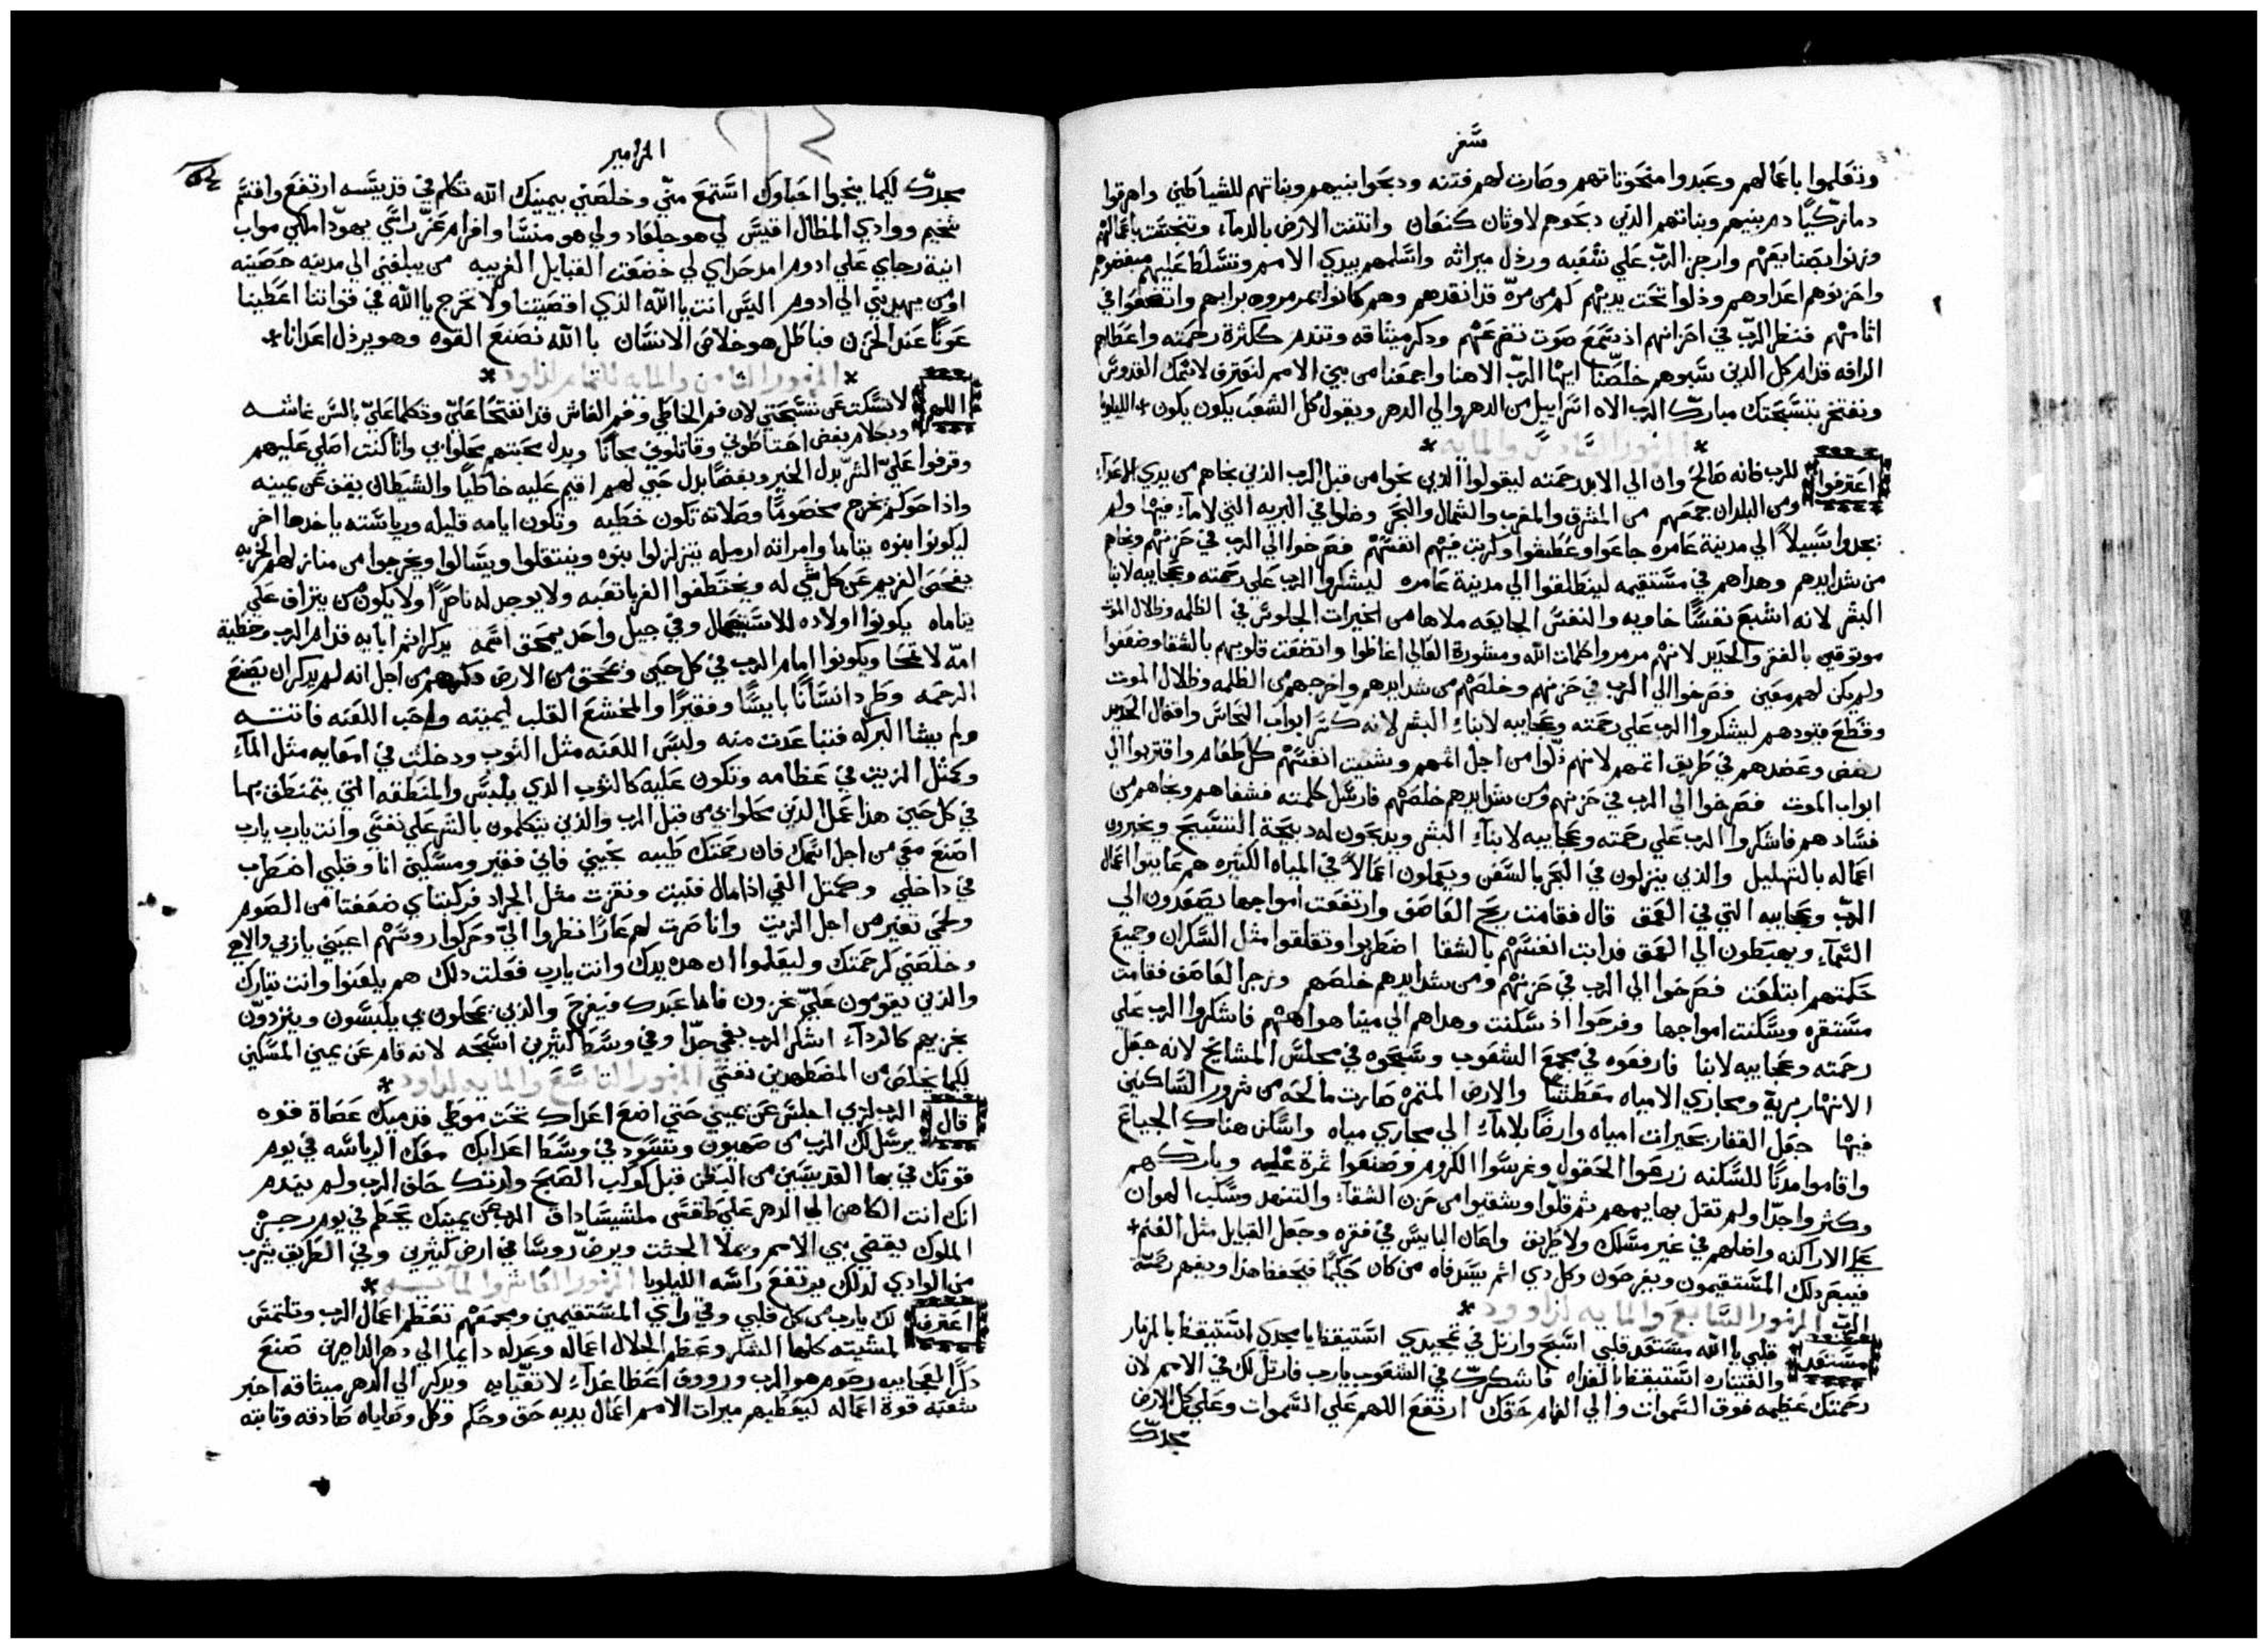 سفر
وتعلموا باعمالهم وعبدوا منحوتاتهم وصارت لهم فتنه ودبحوا بنيهم وبناتهم للشياطين واهرقوا
دما زكيا دم بنيهم وبناتهم الذين دبحوهم لاوثان كنعان وانتنت الارض بالدماء وتنجست باعمالهم
وزنوا بصنايعهم وارجز الرب علي شعبه ورذل ميراثه واسلمهم بيدي الامم وتسلط عليهم مبغضوهم
واحزنوهم اعداوهم وذلوا تحت يديهم كم من مره قد انقدهم وهم كانوا يمرمروه برايهم واتضعوا في
اثامهم فنظر الرب في احزانهم اذ سمع صوت تضرعهم ودكر ميثاقه وتندم ككثرة رحمته واعطاهم
الرافه قدام كل الدين سبوهم خلصنا ايها الرب الاهنا واجمعنا من بين الامم لنعترف لاسمك القدوس
ونفتخر بتسبحتك مبارك الرب الاه اسراييل من الدهر والي الدهر ويقول كل الشعب يكون يكون الليلويا
المزمور السادس والمايه
اعترفوا للرب فانه صالح وان الي الابد رحمته ليقولوا الدين نجوا من قبل الرب الذين نجاهم من يدي الاعداء
ومن البلدان جمعهم من المشرق والمغرب والشمال والبحر وضلوا في البريه التي لا ماء فيها ولم
يجدوا سبيلا الي مدينة عامره جاعوا وعطشوا وكربت فيهم انفسهم فصرخوا الي الرب في حزنهم ونجاهم
من شدايدهم وهداهم في مستقيمه لينطلقوا الي مدينة عامره ليشكروا الرب علي رحمته وعجايبه لابنا
البشر لانه اشبع نفسا خاويه والنفس الجايعه ملاها من الخيرات الجلوس في الظلمه وظلال الموت
موثوقين بالفقر والحديد لانهم مرمروا كلمات الله ومشورة العالي اغاظوا واتضعت قلوبهم بالشقا وضعفوا
ولم يكن لهم معين فصرخوا الي الرب في حزنهم وخلصهم من شدايدهم واخرجهم من الظلمه وظلال الموت
وقطع قيودهم ليشكروا الرب علي رحمته وعجايبه لابناء البشر لانه كسر ابواب النحاس واقفال الحديد
وعضدهم في طريق اثمهم لانهم ذلوا من اجل اثمهم وشنيت انفسهم كل طعام واقتربوا الي
ابواب الموت فصرخوا الي الرب في حزنهم ومن شدايدهم خلصهم فارسل كلمته فشفاهم ونجاهم من
فسادهم فاشكروا الرب علي رحمته وعجايبه لابناء البشر ويدبحون له دبيحة التسبيح ويخبرون
اعماله بالتهليل والذين ينزلون في البحر بالسفن ويعملون اعمالا في المياه الكثيره هم عاينوا اعمال
الرب وعجايبه التي في العمق قال فقامت ريح العاصف وارتفعت امواجها يصعدون الي
السماء ويهبطون الي العمق فدابت انفسهم بالشقا اضطربوا وتقلقوا مثل السكران وجميع
حكمتهم ابتلعت فصرخوا الي الرب في حزنهم ومن شدايدهم خلصهم وزجر العاصف فقامت
مستقره وسكنت امواجها وفرحوا اذ سكنت وهداهم الي مينا هواهم فاشكروا الرب علي
رحمته وعجايبه لابنا فارفعوه في مجمع الشعوب وسبحوه في مجلس المشايخ لانه جعل
الانهار بريه ومجاري الامياه معطشا والارض المثمره صارت مالحه من شرور الساكنين
فيها جعل القفار بحيرات امياه وارضا بلا ماء الي مجاري مياه واسكن هناك الجياع
واقاموا مدنا للسكنه زرعوا الحقول وغرسوا الكروم وصنعوا ثمرة غله وباركهم
وكثروا جدا ولم تقل بهايمهم ثم قلوا وشقيوا من حزن الشقاء والتنهد وسكب الهوان
علي الاراكنه واضلهم في غير مسلك ولا طريق واعان البايس في فقره وجعل القبايل مثل الغنم
فيبصر دلك المستقيمون ويفرحون وكل دي اثم يسد فاه من كان حكيما فيحفظ هذا ويفهم رحمة
الرب المزمور السابع والمايه لداوود
مستعد قلبي يا الله مستعد قلبي اسبح وارتل في تمجيدي استيقظ يا مجدي استيقظ يا المزمار
والقيتاره استيقظ بالغداه فاشكرك في الشعوب يارب فارتل لك في الامم لان
رحمتك عظيمه فوق السموات والي الغمام حقك ارتفع اللهم علي السموات وعلي كل الارض
مجدك
المزامير
مجدك لكيما ينجوا احباوك استمع مني وخلصني بيمينك الله تكلم في قديسه ارتفع واقسم
شخيم ووادي المظال اقيس لي هو جلعاد ولي هو منسا وافرام عز راسي يهودا ملكي مواب
انية رجاي علي ادوم امد حداي لي خضعت القبايل الغريبه من يبلغني الي مدينه حصينه
او من يهديني الي ادوم اليس انت يا الله الذي اقصيتنا ولا تخرج يا الله في قواتنا اعطينا
عونا عند الحزن فباطل هو خلاص الانسان با الله نصنع القوه وهو يرذل اعدانا
المزمور الثامن والمايه للتمام لداود
اللهم لا تسكت عن تسبحتي لان فم الخاطي وفم الغاش قد انفتحا علي وتكلما علي بالسن غاشه
وبكلام بغض احتاطوني وقاتلوني مجانا وبدل محبتهم محلوا بي وانا كنت اصلي عليهم
وقرفوا علي الشر بدل الخير وبغضا بدل حبي لهم اقيم عليه خاطيا والشيطان يقف عن يمينه
واذا حوكم يخرج مخصوما وصلاته تكون خطيه وتكون ايامه قليله ورياسته ياخدها اخر
ليكونوا بنوه يتاما وامراته ارمله يتزلزلوا بنوه وينتقلوا ويسالوا ويخرجوا من منازلهم الخربه
يفحص الغريم عن كل شي له ويختطفوا الغربا تعبه ولا يوجد له ناصرا ولا يكون من يتراف علي
يتاماه يكونوا اولاده للاستيصال وفي جيل واحد يمحق اسمه يدكر اثم ابايه قدام الرب وخطية
امه لا تمحا ويكونوا امام الرب في كل حين وتمحق من الارض دكرهم من اجل انه لم يدكر ان يصنع
الرحمه وطرد انسانا بايسا وفقيرا والمخشع القلب ليميته واحب اللعنه فاتته
ولم يشا البركه فتباعدت منه ولبس اللعنه مثل الثوب ودخلت في امعايه مثل الماء
وكمثل الزيت في عظامه وتكون عليه كالثوب الدي يلبس والمنطقه التي يتمنطق بها
في كل حين هدا عمل الدين محلوا بي من قبل الرب والذين يتكلمون بالشر علي نفسي وانت يارب يارب
اصنع معي من اجل اسمك فان رحمتك طيبه نجيني فاني فقير ومسكين انا وقلبي اضطرب
في داخلي وكمثل الفي اذا مال فنيت ونفزت مثل الجراد فركبتاي ضعفتا من الصوم
ولحمي تغير من اجل الزيت وانا صرت لهم عارا نظروا الي وحركوا روسهم اعيني ياربي والاهي
وخلصني كرحمتك وليعلموا ان هده يدك وانت يارب فعلت دلك هم يلعنوا وانت تبارك
والذين يقومون علي يخزون فاما عبدك فيفرح والذين يمحلون بي يلبسون ويتردون
بخزيهم كالرداء اشكر الرب بفمي جدا وفي وسط كثيرين اسبحه لانه قام عن يمين المسكين
لكيما يخلص من المضطهدين نفسي المزمور التاسع والمايه لداود
قال الرب لربي اجلس عن يميني حتي اضع اعداك تحت موطي قدميك عصاة قوه
يرسل لك الرب من صهيون وتسود في وسط اعدايك معك الرياسه في يوم
قوتك في بها القديسين من البطن قبل كوكب الصبح ولدتك حلف الرب ولم يندم
انك انت الكاهن الي الدهر علي طقس ملشيساداق الرب عن يمينك يحطم في يوم رجزه
الملوك يقضي بين الامم ويملا الجثث ويرض روسا في ارض كثيرين وفي الطريق يشرب
من الوادي لدلك يرتفع راسه الليلويا المزمور العاشر والمايه
اعترف لك يارب من كل قلبي وفي راي المستقيمين ومجمعهم تعظم اعمال الرب وتلتمس
لمشيته كلها الشكر وعظم الجلال اعماله وعدله دايما الي دهر الداهرين صنع
دكرا لعجايبه رحوم هو الرب ورووف اعطا غداء لاتقيايه ويدكر الي الدهر ميثاقه اخبر
شعبه قوة اعماله ليعطيهم ميرات الامم اعمال يديه حق وحكم وكل وصاياه صادقه وثابته